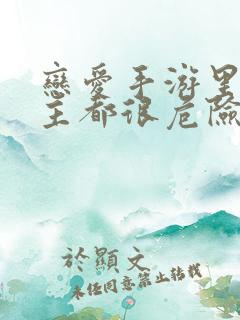 戀愛手游
主都很危險
於顯文
未经同意禁止转载